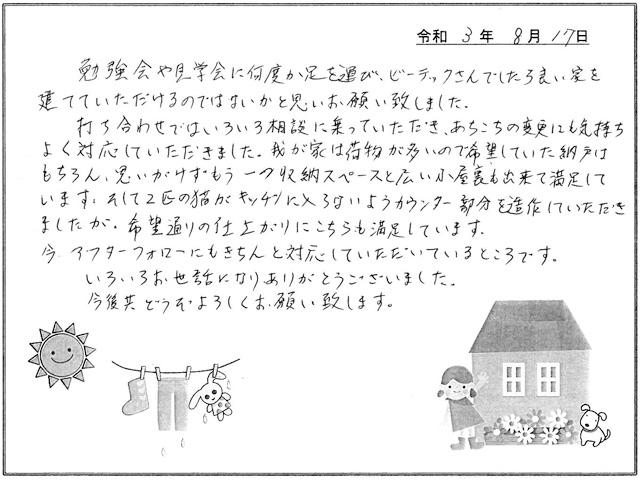 令和 3年 8月 17日
勉強会や見学会に何度か足を運び、ビーテックさんでしたら良い家を
建てていただけるのではないかと思いお願い致しました。
打ち合わせではいろいろ相談に乗っていただき、あちこちの変更にも気持ち
よく対応していただきました。我が家は荷物が多いので希望していた納戸は
もちろん、思いがけずもう一つ収納スペースと広い小屋裏も出来て満足して
います。そして2匹の猫がキッチンに入らないようカウンター部分を造作していただき
ましたが、希望通りの仕上がりにこちらも満足しています。
今、アフターフォローにもきちんと対応していただいているところです。
いろいろお世話になりありがとうございました。
今後共どうぞよろしくお願い致します。